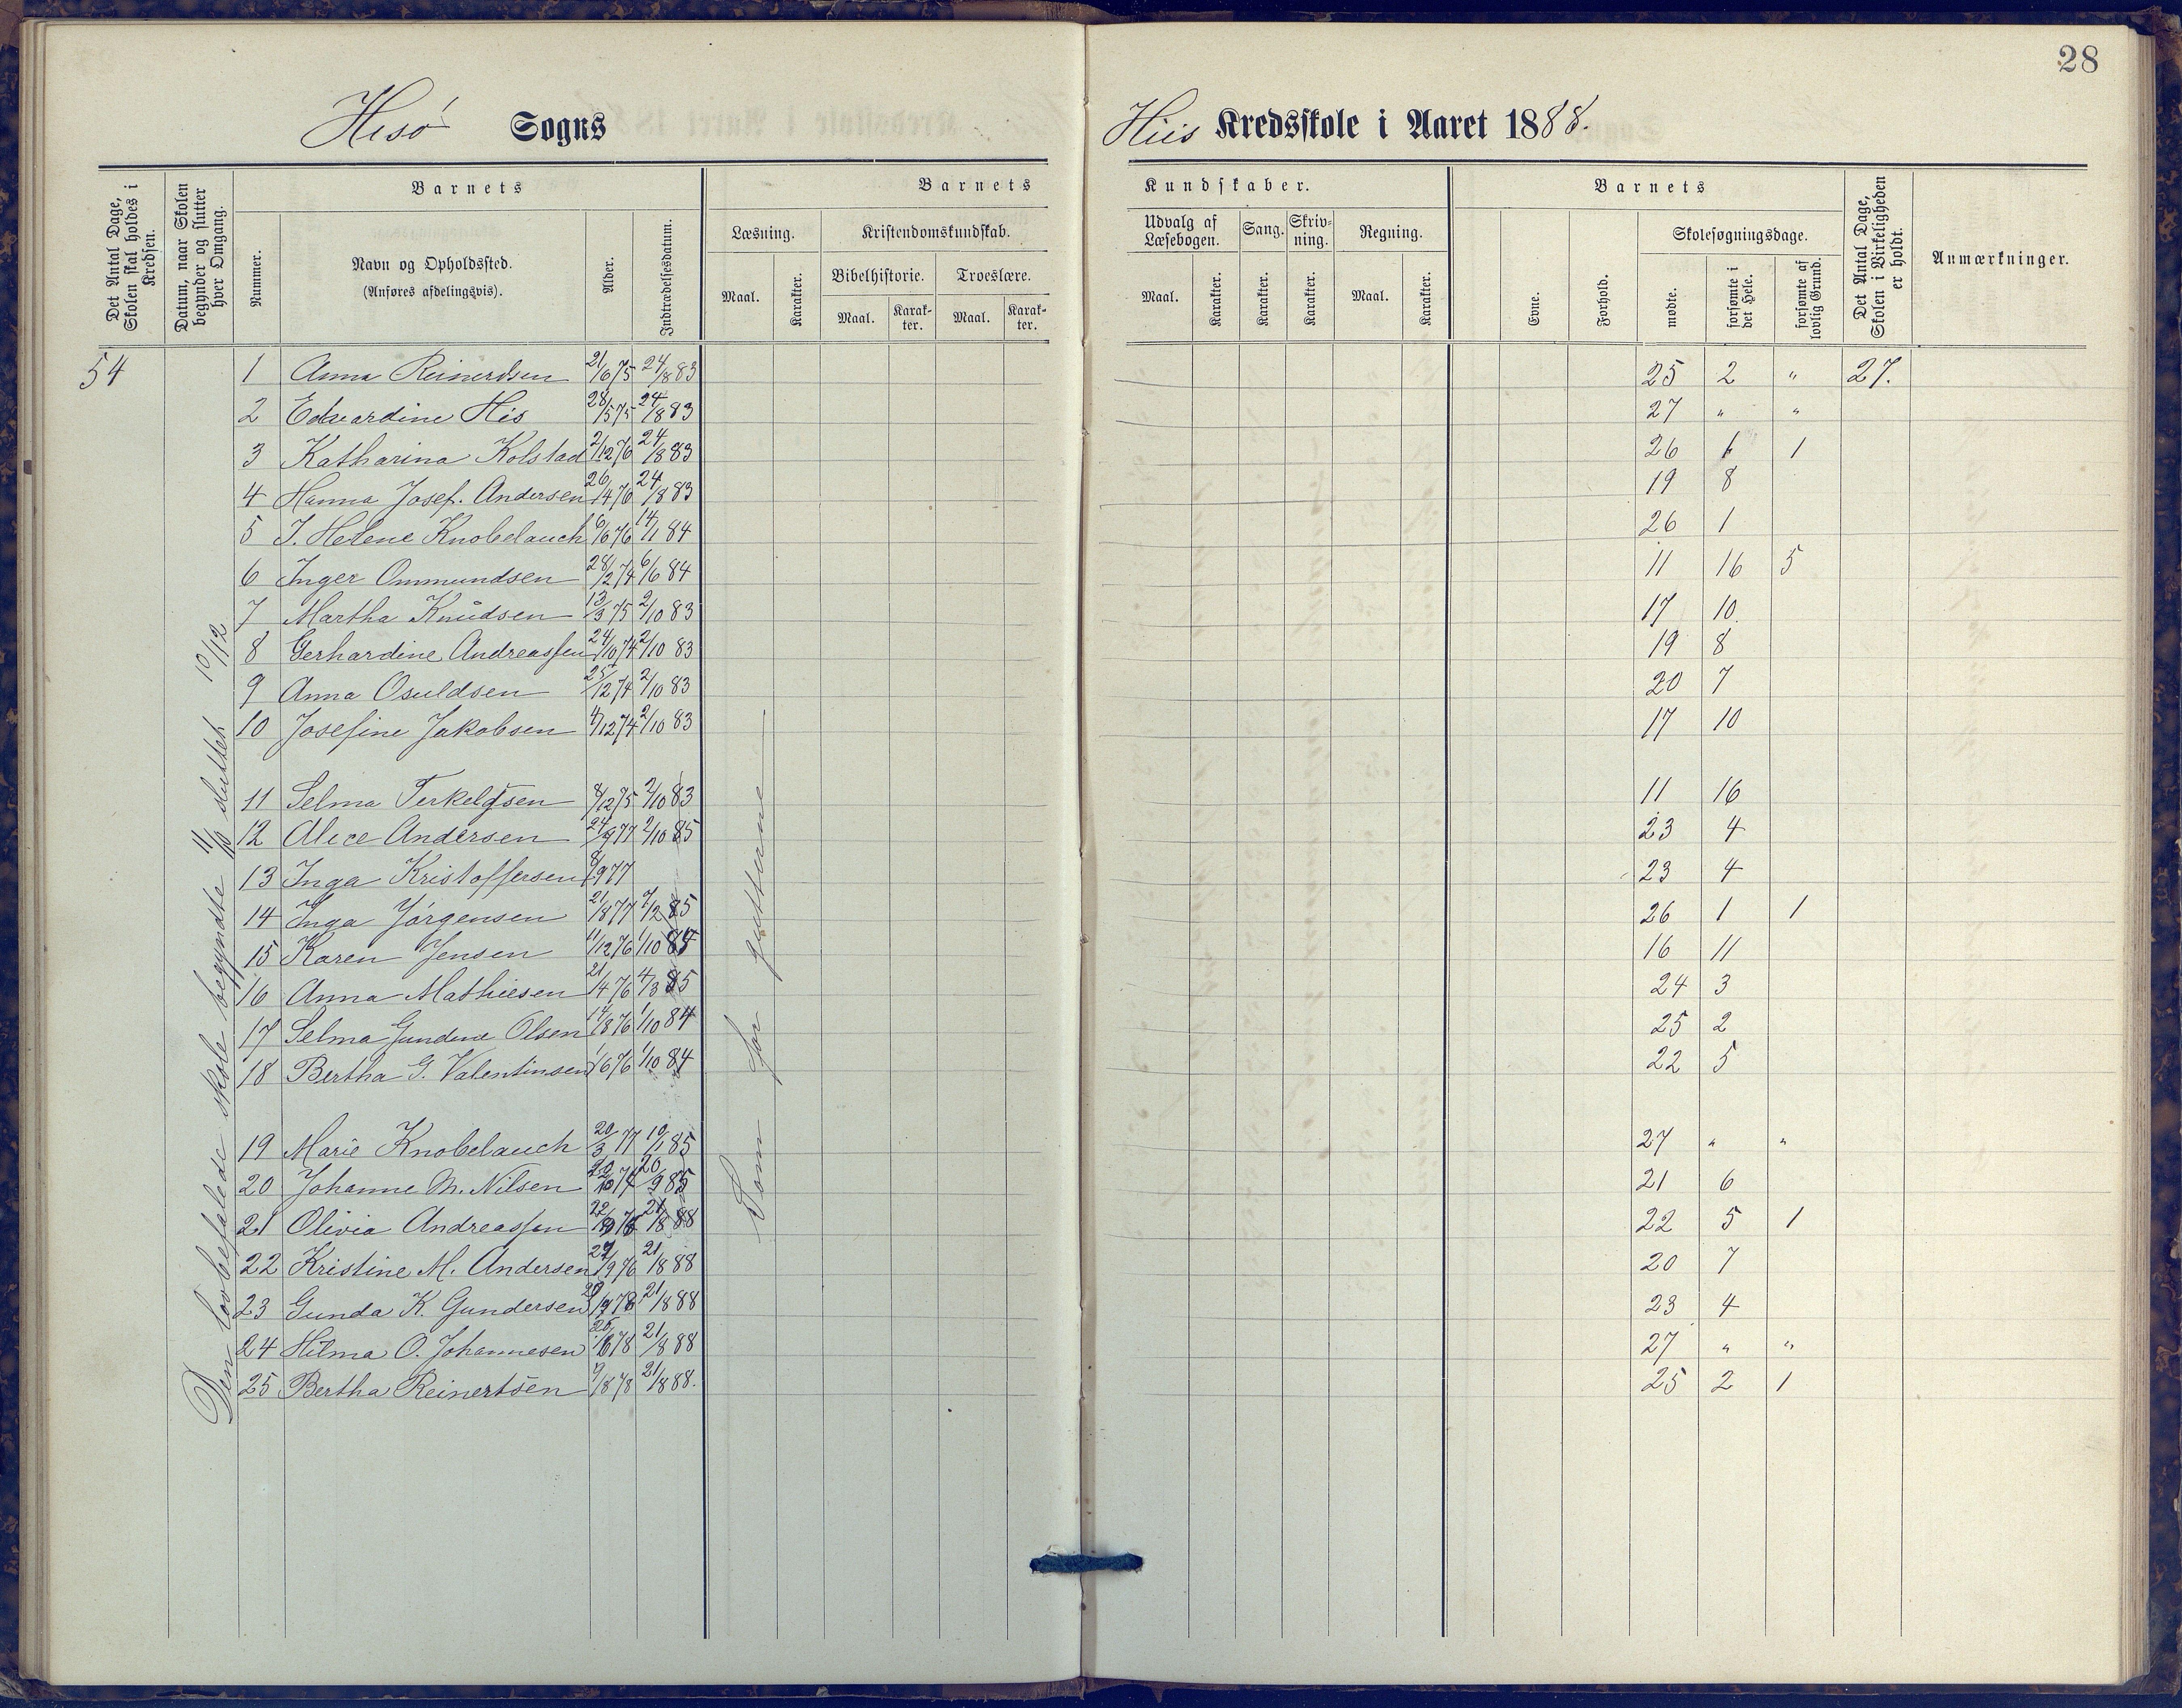 28
Hisø Sogns
Hiis Kredsskole i Aaret 1888.
Det Antal Dage, Skolen skal holdes i Kredsen.
Datum, naar Skolen begynder og slutter hver Omgang.
Barnets
Nummer.
Navn og Opholdssted.
(Anføres afdelingsvis).
Alder.
Indtrædelsesdatum.
Barnets
Læsning.
Maal.
Karakter.
Kristendomskundskab.
Bibelhistorie.
Maal.
Karakter.
Troeslære.
Maal.
Karakter.
Kundskaber.
Udvalg af Læsebogen.
Maal.
Karakter.
Sang.
Karakter.
Skrivning.
Karakter.
Regning.
Maal.
Karakter.
Barnets
Evne.
Forhold.
Skolesøgningsdage.
mødte.
forsømte i det Hele.
forsømte af lovlig Grund.
Det Antal Dage, Skolen i Virkeligheden er holdt.
Anmærkninger.
54
Den lovbefalede skole begyndte 11/10 sluttet 10/12
Som for gutterne
1 Anna Reinerdsen 21/6 75 24/8 83 25 2 " 27.
2 Edvardine His 28/5 75 24/8 83 27 " "
3 Katharina Kolstad 2/12 76 24/8 83 26 1 1
4 Hanna Josef. Andersen 26/4 76 24/8 83 19 8
5 J. Helene Knobelauch 6/6 76 14/1 84 26 1
6 Inger Ommundsen 28/2 74 6/6 84 11 16 5
7 Martha Knudsen 13/3 75 2/10 83 17 10
8 Gerhardine Andreassen 24/10 74 2/10 83 19 8
9 Anna Osuldsen 25/12 74 2/10 83 20 7
10 Josefine Jakobsen 4/12 74 2/10 83 17 10
11 Selma Terkelsen 8/12 75 2/10 83 11 16
12 Alice Andersen 24/9 77 2/10 85 23 4
13 Inga Kristoffersen 8/9 77 23 4
14 Inga Jørgensen 21/8 77 85 26 1 1
15 Karen Jensen 11/12 76 1/10 16 11
16 Anna Mathiesen 21/4 76 4/3 85 24 3
17 Selma Gundine Olsen 14/8 76 1/10 84 25 2
18 Bertha G. Valentinsen 1/6 76 1/10 84 22 5
19 Marie Knobelauch 20/3 77 10/1 85 27 " "
20 Johanne M. Nilsen 74 20/9 85 21 6
21 Olivia Andreassen 21/8 88 22 5 1
22 Kristine M. Andersen 9 76 21/8 88 20 7
23 Gunda K. Gundersen 78 21/8 88 23 4
24 Hilma O. Johannesen 78 21/8 88 27 " "
25 Bertha Reinertsen 9/8 78 21/8 88. 25 2 1